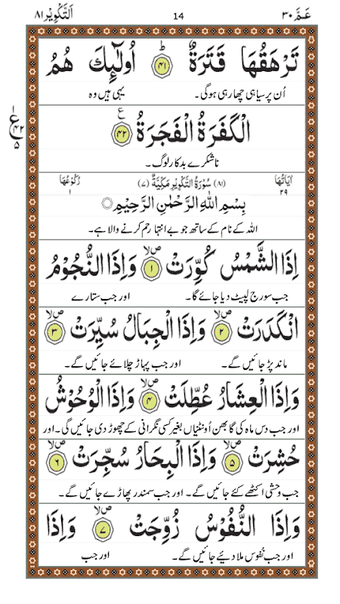 عَمَّ ٣٠ 14 اَلتَّكْوِيْر ٨١
تَرْهَقُهَا قَتَرَةٌ ؕ﴿۴۱﴾ اُولٰٓئِكَ هُمُ
اُن پر سیاہی چھا رہی ہوگی۔ یہی ہیں وہ
الْكَفَرَةُ الْفَجَرَةُ ﴿۴۲﴾ ع
ناشکرے بدکار لوگ۔
اٰیَاتُهَا ۲۹ (۸۱) سُوْرَةُ التَّكْوِيْرِ مَكِّيَّةٌ (۷) رُكُوْعُهَا ۱
بِسْمِ اللّٰهِ الرَّحْمٰنِ الرَّحِيْمِ
اللہ کے نام کے ساتھ جو بے انتہا رحم کرنے والا ہے۔
اِذَا الشَّمْسُ كُوِّرَتْ ﴿۱﴾ وَاِذَا النُّجُوْمُ
جب سورج لپیٹ دیا جائے گا۔ اور جب ستارے
انْكَدَرَتْ ﴿۲﴾ وَاِذَا الْجِبَالُ سُيِّرَتْ ﴿۳﴾
ماند پڑ جائیں گے۔ اور جب پہاڑ چلائے جائیں گے۔
وَاِذَا الْعِشَارُ عُطِّلَتْ ﴿۴﴾ وَاِذَا الْوُحُوْشُ
اور جب دس ماہ کی گابھن اونٹنیاں بغیر کسی نگرانی کے چھوڑ دی جائیں گی۔ اور
حُشِرَتْ ﴿۵﴾ وَاِذَا الْبِحَارُ سُجِّرَتْ ﴿۶﴾
جب وحشی اکٹھے کئے جائیں گے۔ اور جب سمندر پھاڑے جائیں گے۔
وَاِذَا النُّفُوْسُ زُوِّجَتْ ﴿۷﴾ وَاِذَا
اور جب نفوس ملا دیئے جائیں گے۔ اور جب